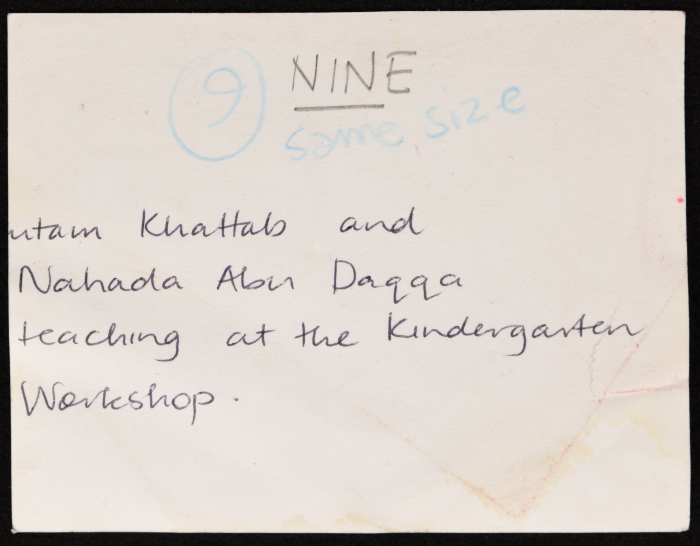 9 NINE
same size
ntam Khattab and
Nahada Abu Daqqa
teaching at the Kindergarten
Workshop.